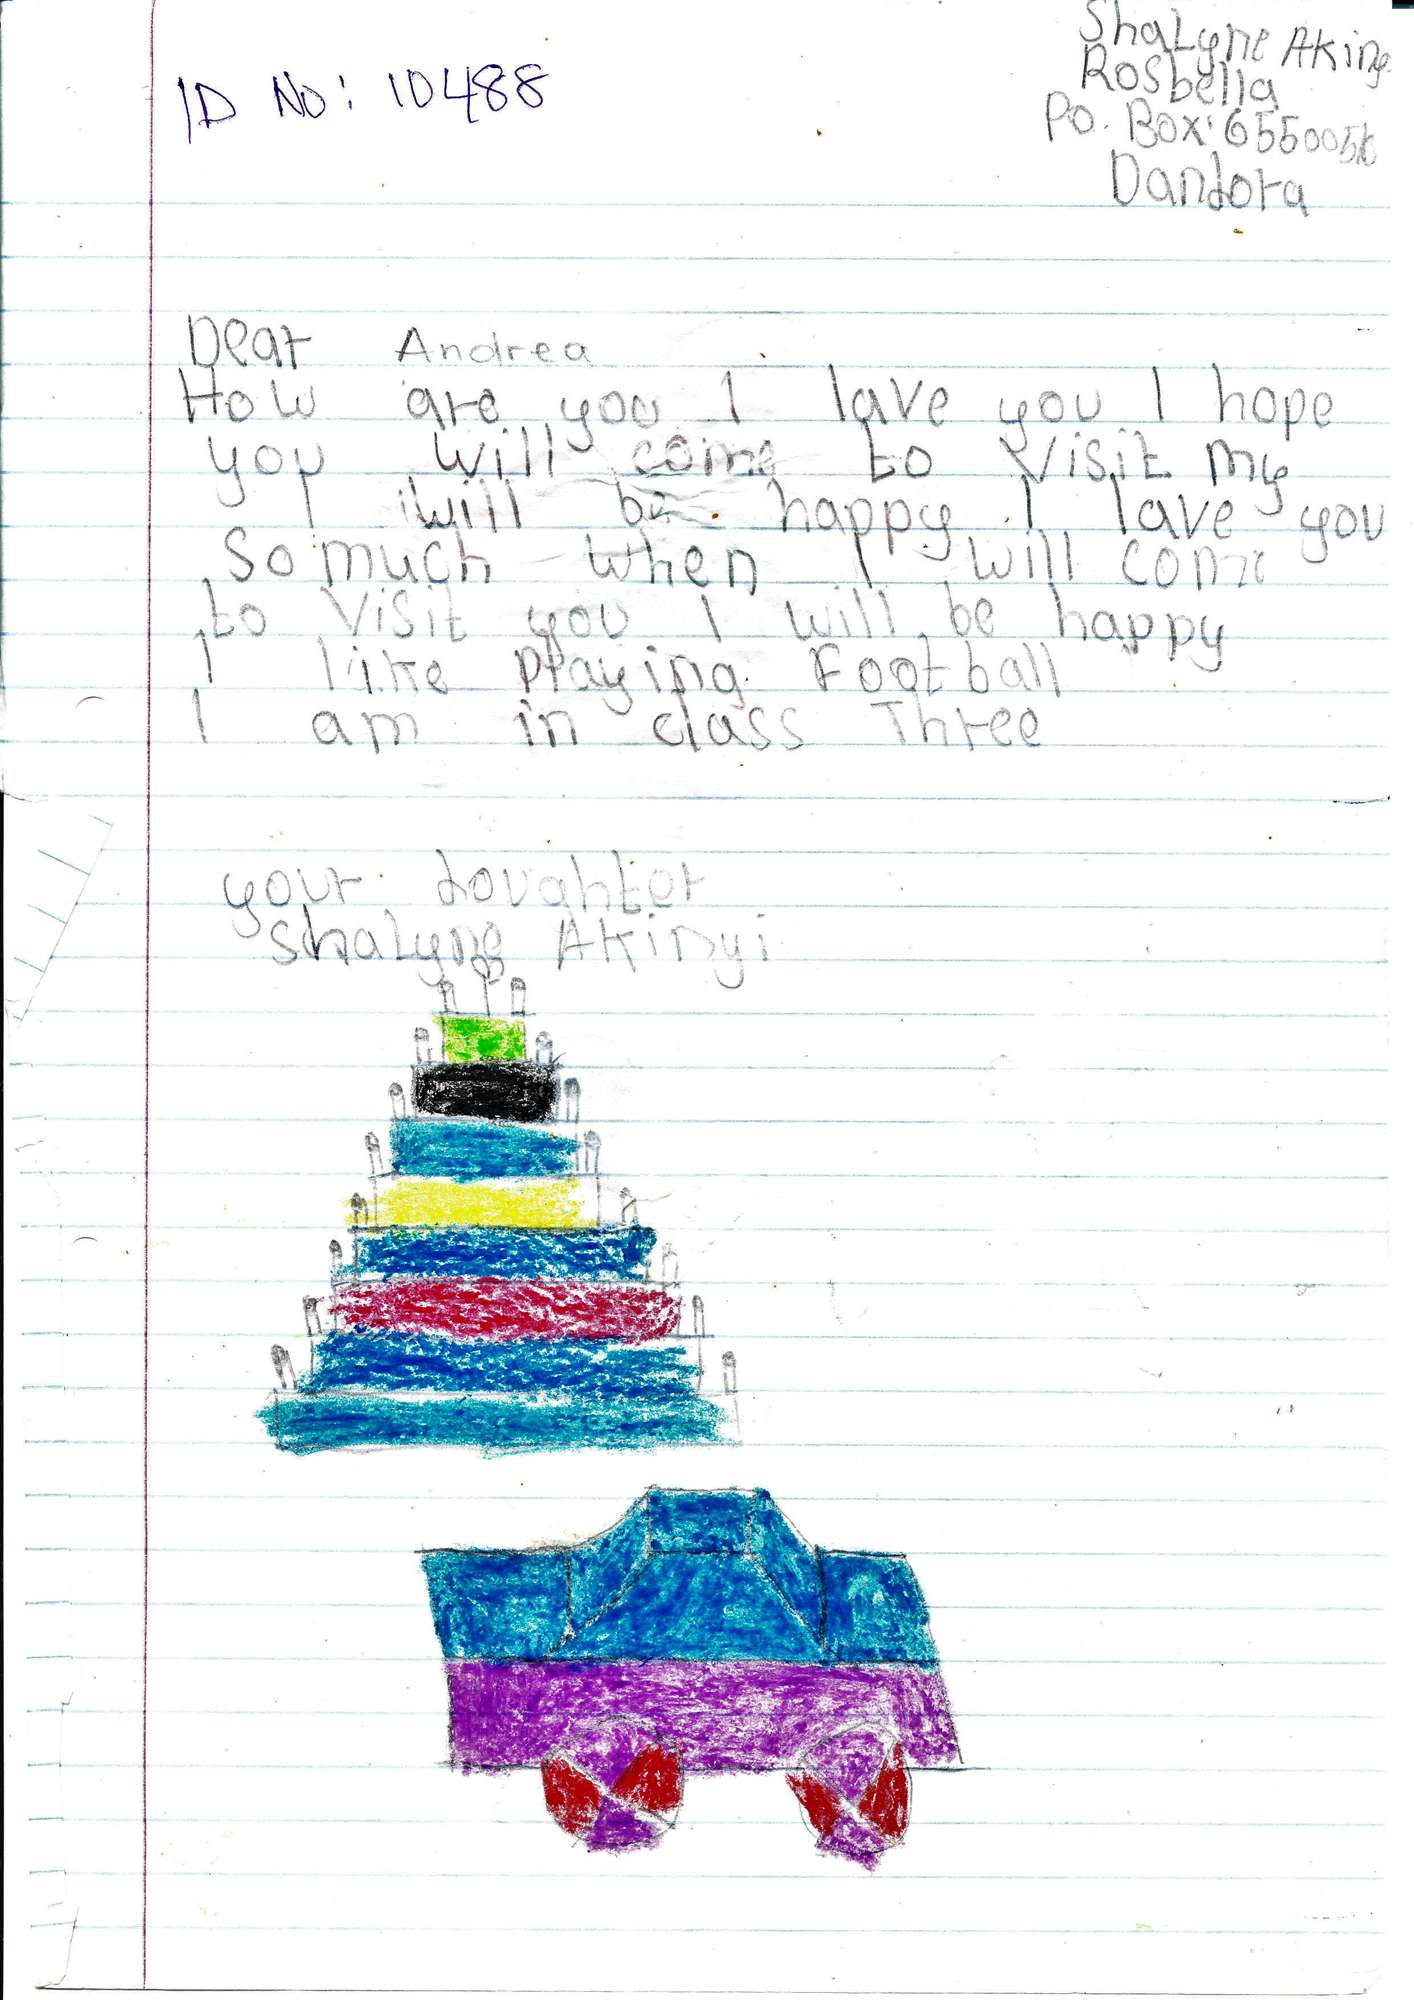 ID No: 10488
ShaLyne AKiny
Rosbella
Po. Box: 655005
Dandora
Dear Andrea
How are you I lave you I hope
you will come to visit my
I will be happy I lave you
So much when I will come
to visit you I will be happy
I like playing Football
I am in class Three
your doughter
ShaLyne AKinyi